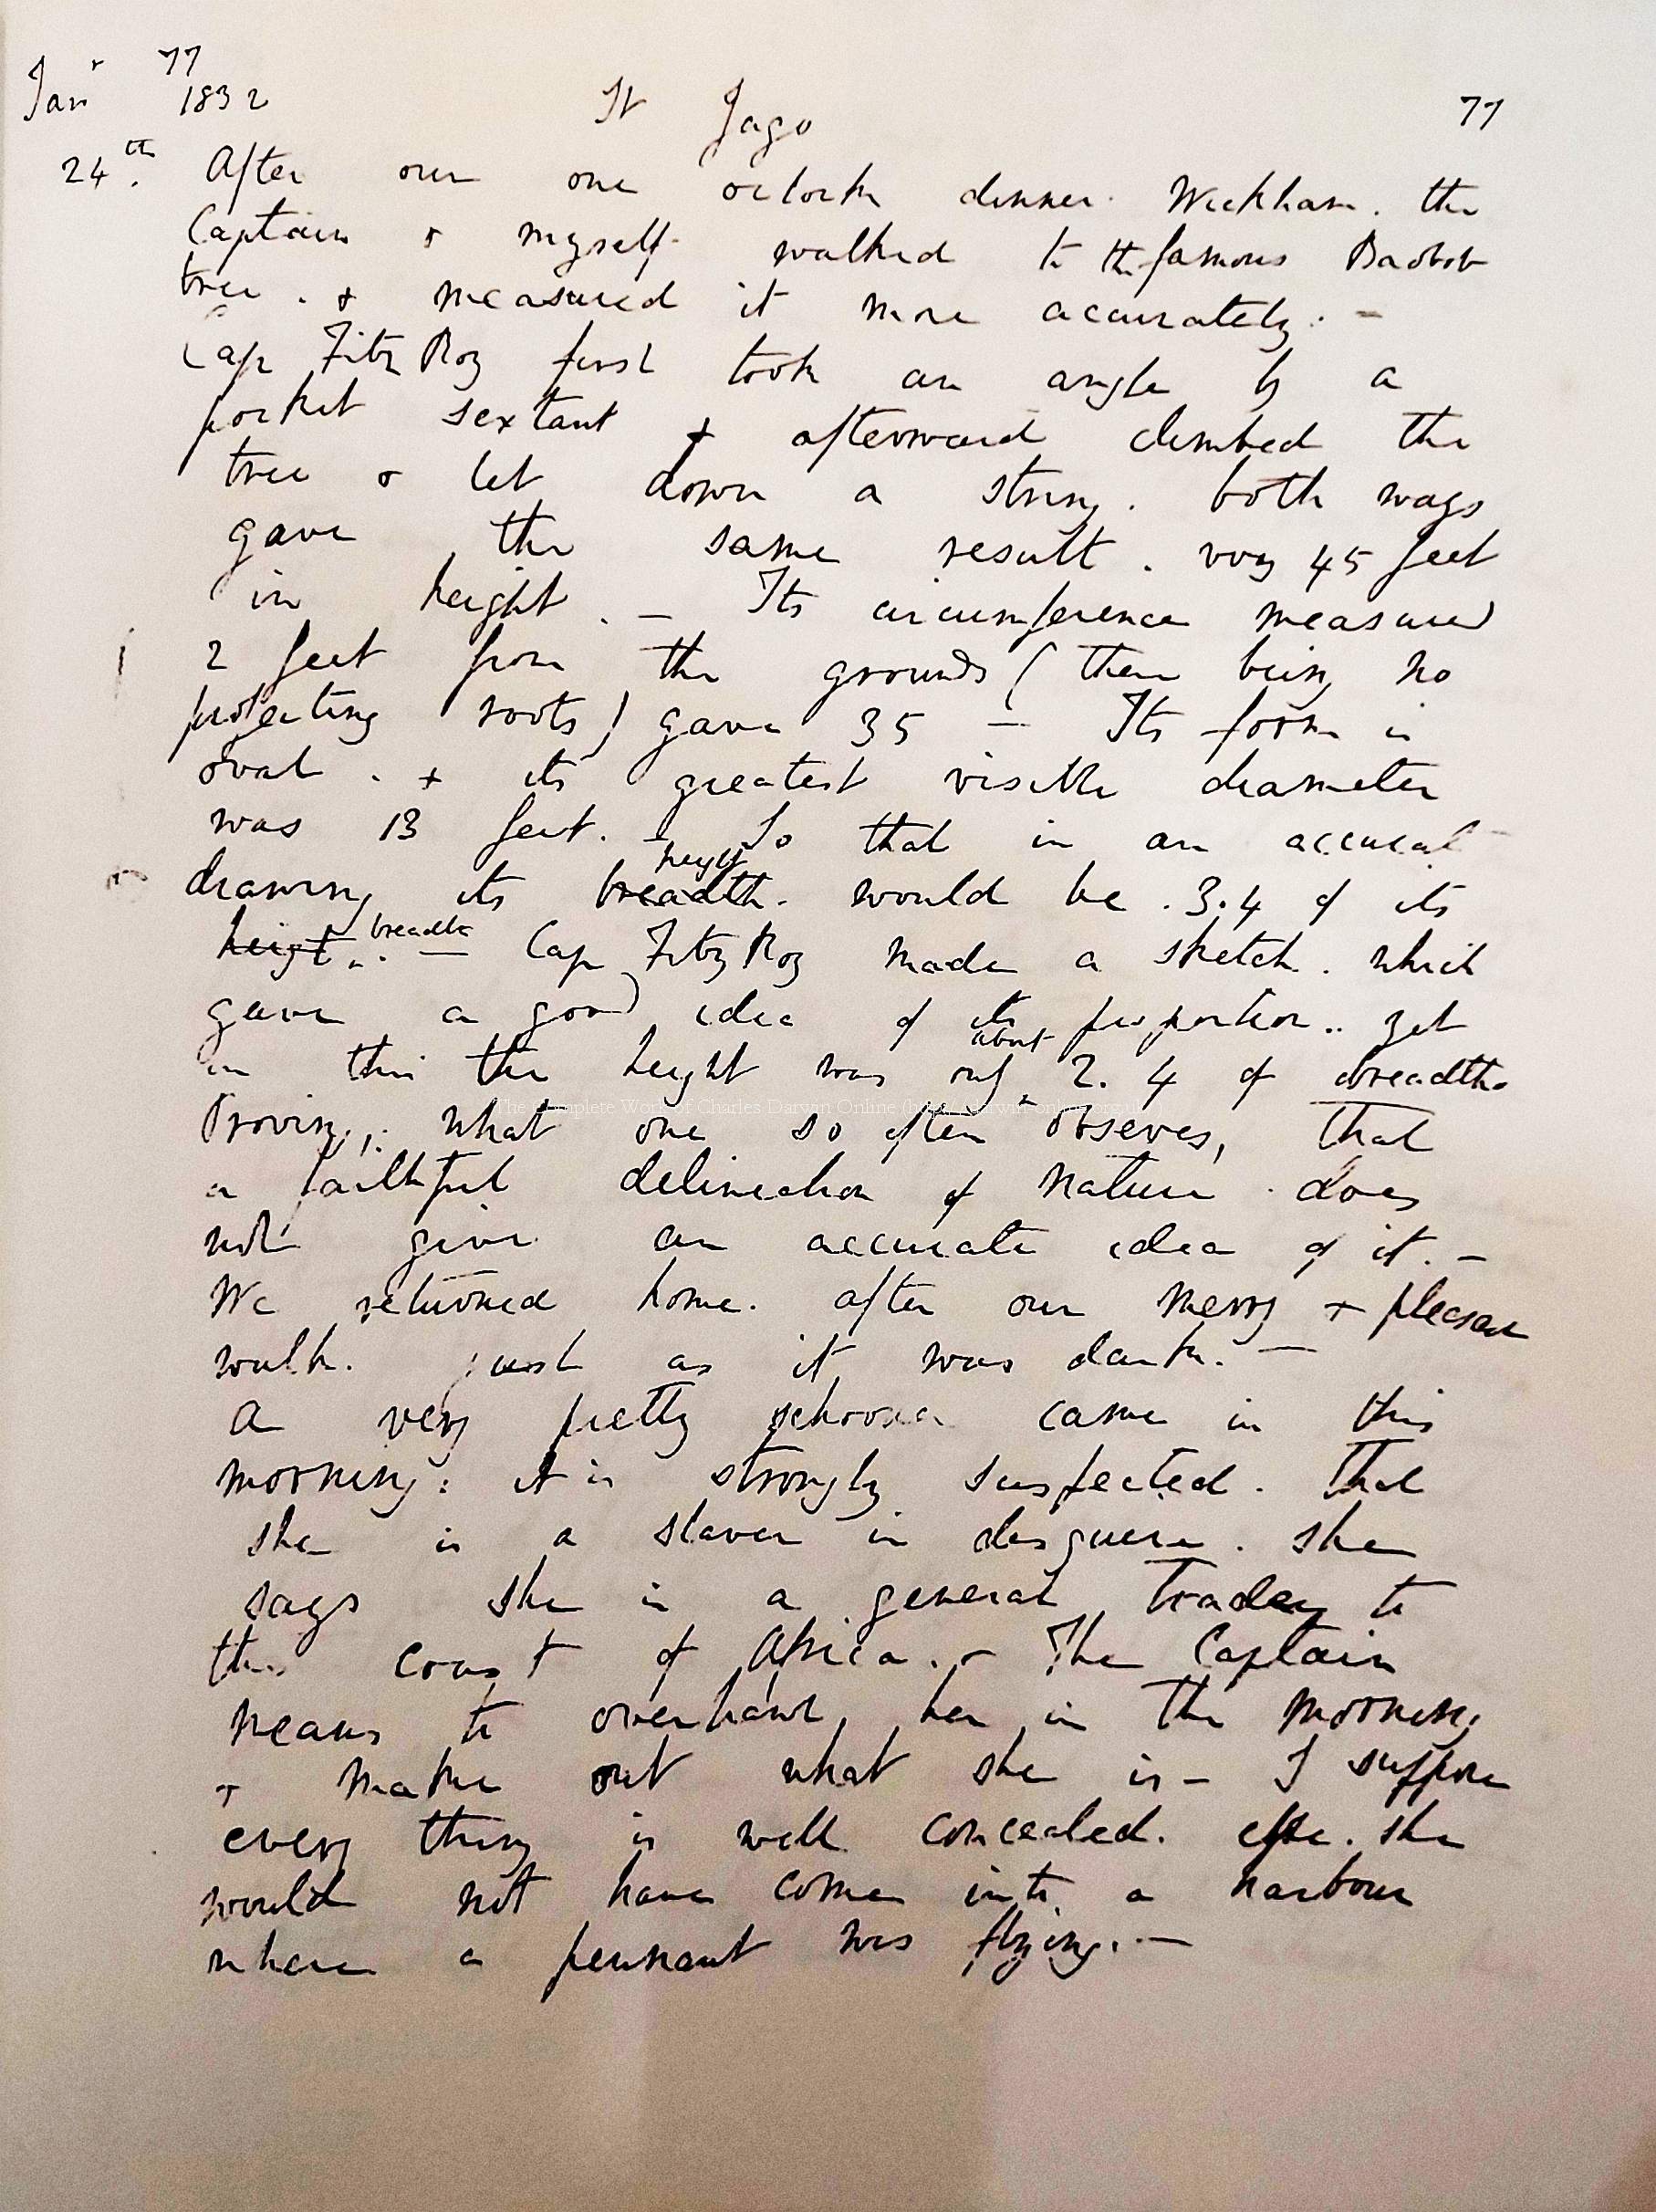 77
Janr 1832 St Jago 77
24th. After our one oclock dinner. Wickham. the
Captain & myself walked to the famous Baobob
tree. & measured it more accurately. —
Cap FitzRoy first took an angle by a
pocket sextant & afterward climbed the
tree & let down a string. both ways
gave the same result. viz 45 feet
in height. — Its circumference measured
2 feet from the ground (there being no
projecting roots) gave 35 — Its form is
oval. & its greatest visible diameter
was 13 feet. — So that in an accurate
height
drawing its breadth. would be .3.4 of its
height. breadth — Cap FitzRoy made a sketch. which
gave a good idea of its proportion.. yet
about
in this the height was only 2.4 of breadth
Proving,. what one so often obseves, that
a faithful delineation of Nature does
not give an accurate idea of it. —
We returned home. after our merry & pleasant
walk. just as it was dark. —
A very pretty schooner came in this
morning: it is strongly suspected. that
she is a slaver in disguise. she
says she is a general trader to
the coast of Africa. — The Captain
means to overhawl her in the morning
& make out what she is — I suppose
every thing is well concealed. else. she
would not have come into a harbour
where a pennant was flying. —
The Complete Work of Charles Darwin Online